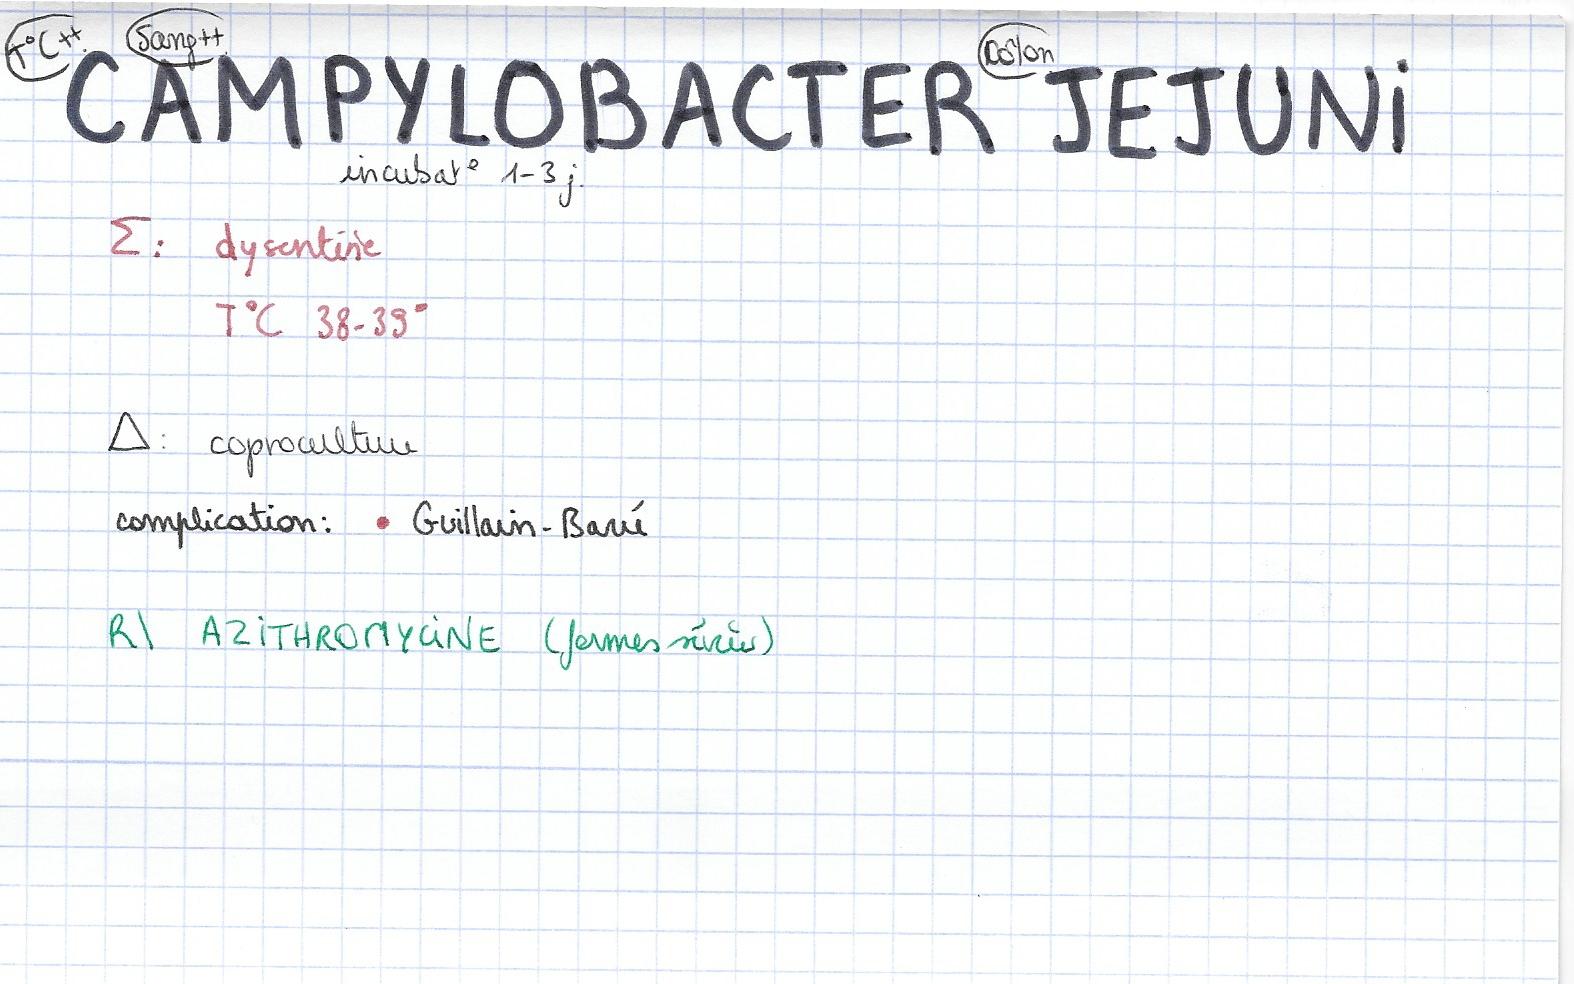 T°C++ Sang++ Côlon
CAMPYLOBACTER JEJUNI
incubat° 1-3 j.
Σ: dysentérie
T°C 38-39°
Δ: coproculture
complication: • Guillain-Barré
R\ AZITHROMYCINE (formes sévères)